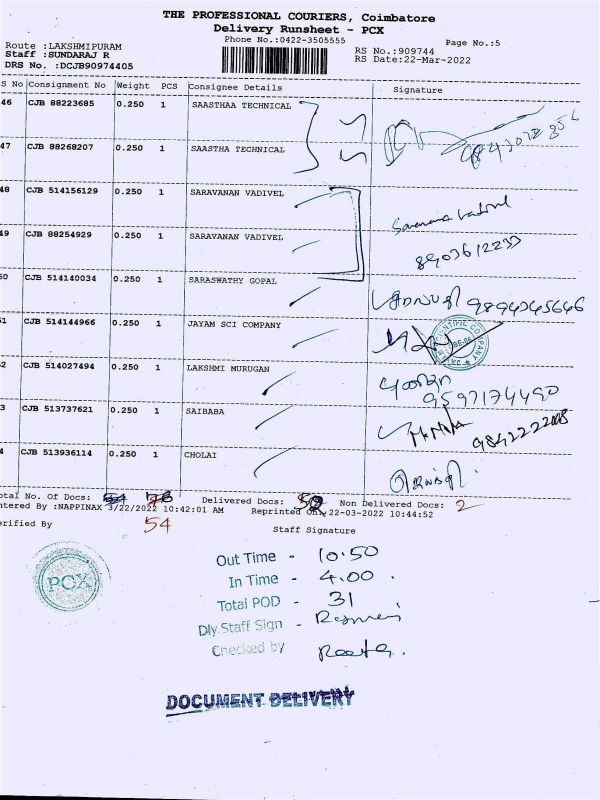 THE PROFESSIONAL COURIERS, Coimbatore
Delivery Runsheet - PCX
Phone No.:0422-3505555
Page No.:5
Route :LAKSHMIPURAM
Staff :SUNDARAJ R
DRS No. :DCJB90974405
RS No.:909744
RS Date:22-Mar-2022
S No Consignment No Weight PCS Consignee Details Signature
46 CJB 88223685 0.250 1 SAASTHAA TECHNICAL
47 CJB 88268207 0.250 1 SAASTHA TECHNICAL
48 CJB 514156129 0.250 1 SARAVANAN VADIVEL
49 CJB 88254929 0.250 1 SARAVANAN VADIVEL
8903612233
50 CJB 514140034 0.250 1 SARASWATHY GOPAL 9894345646
51 CJB 514144966 0.250 1 JAYAM SCI COMPANY
52 CJB 514027494 0.250 1 LAKSHMI MURUGAN
9597174490
53 CJB 513737621 0.250 1 SAIBABA
54 CJB 513936114 0.250 1 CHOLAI
otal No. Of Docs: Delivered Docs: Non Delivered Docs: 2
ntered By :NAPPINAX 3/22/2022 10:42:01 AM Reprinted On 22-03-2022 10:44:52
erified By 54 Staff Signature
Out Time - 10.50
In Time - 4.00
Total POD - 31
Dly.Staff Sign -
Checked by Reeta.
PCX
DOCUMENT DELIVERY